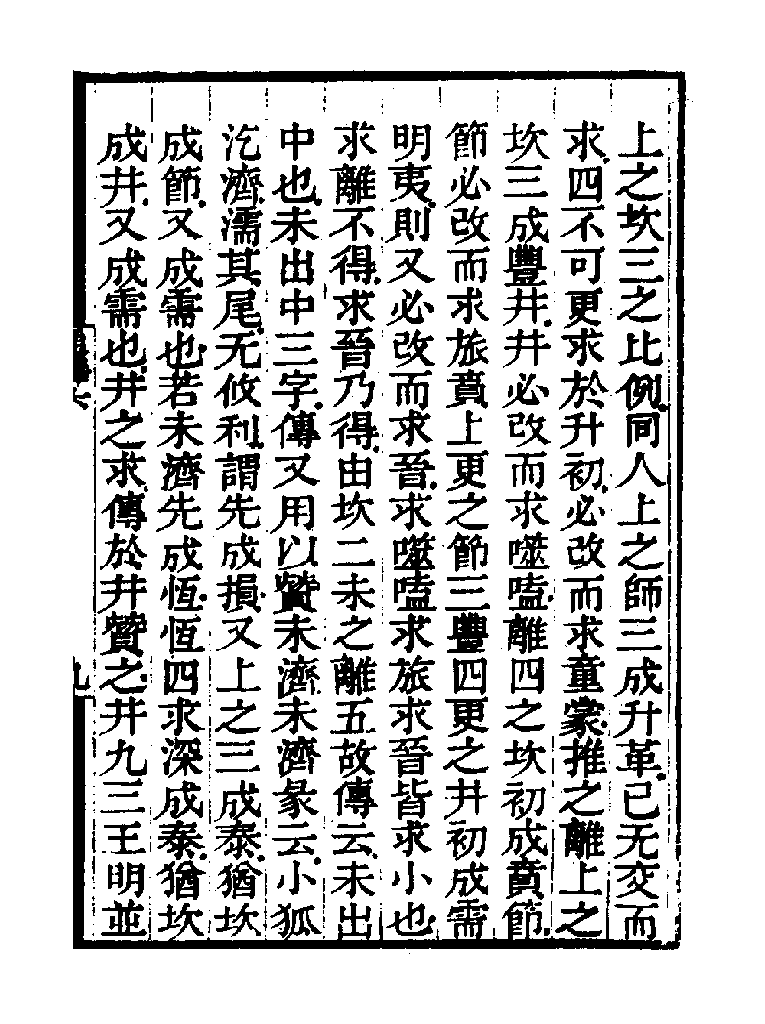 上之坎三之比例同人上之師三成升革已无交而
求四不可更求於升初必改而求童蒙推之離上之
坎三成豐井井必改而求噬嗑離四之坎初成賁節
節必改而求旅賁上更之節三豐四更之井初成需
明夷則又必改而求晉求噬嗑求旅求晉皆求小也
求離不得求晉乃得由坎二未之離五故傳云未出
中也未出中三字傳又用以贊未濟未濟彖云小狐
汔濟濡其尾无攸利謂先成損又上之三成泰猶坎
成節又成需也若未濟先成恆恆四求深成泰猶坎
成井又成需也井之求傳於井贊之井九三王明並
九